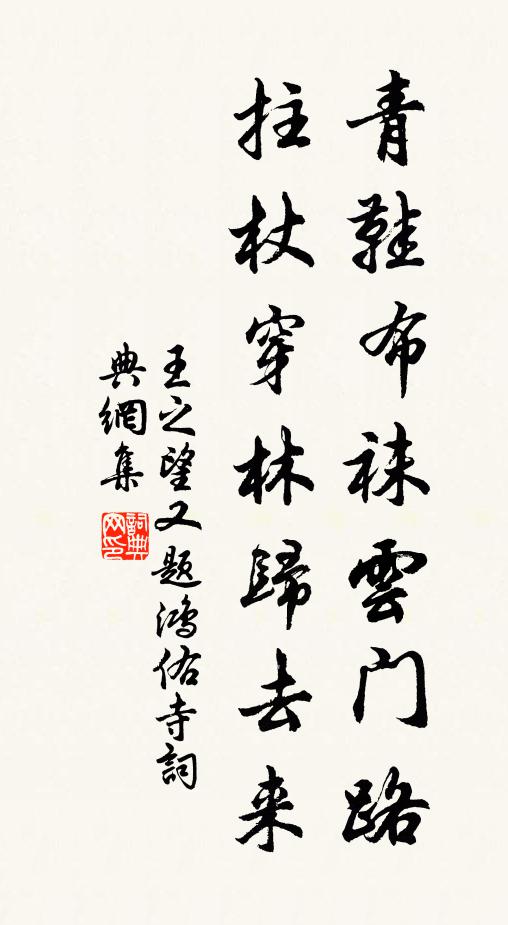 青鞋布袜雲门路
拄杖穿林歸去来
王之望又题鴻佑寺詞
典網集
詞典网印